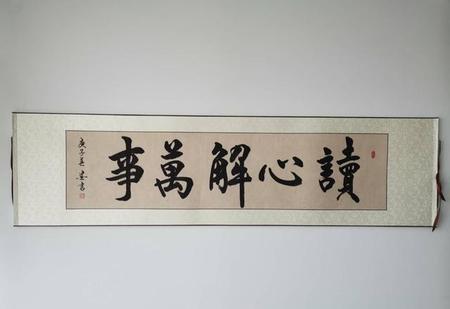 讀心解萬事
庚子年
書